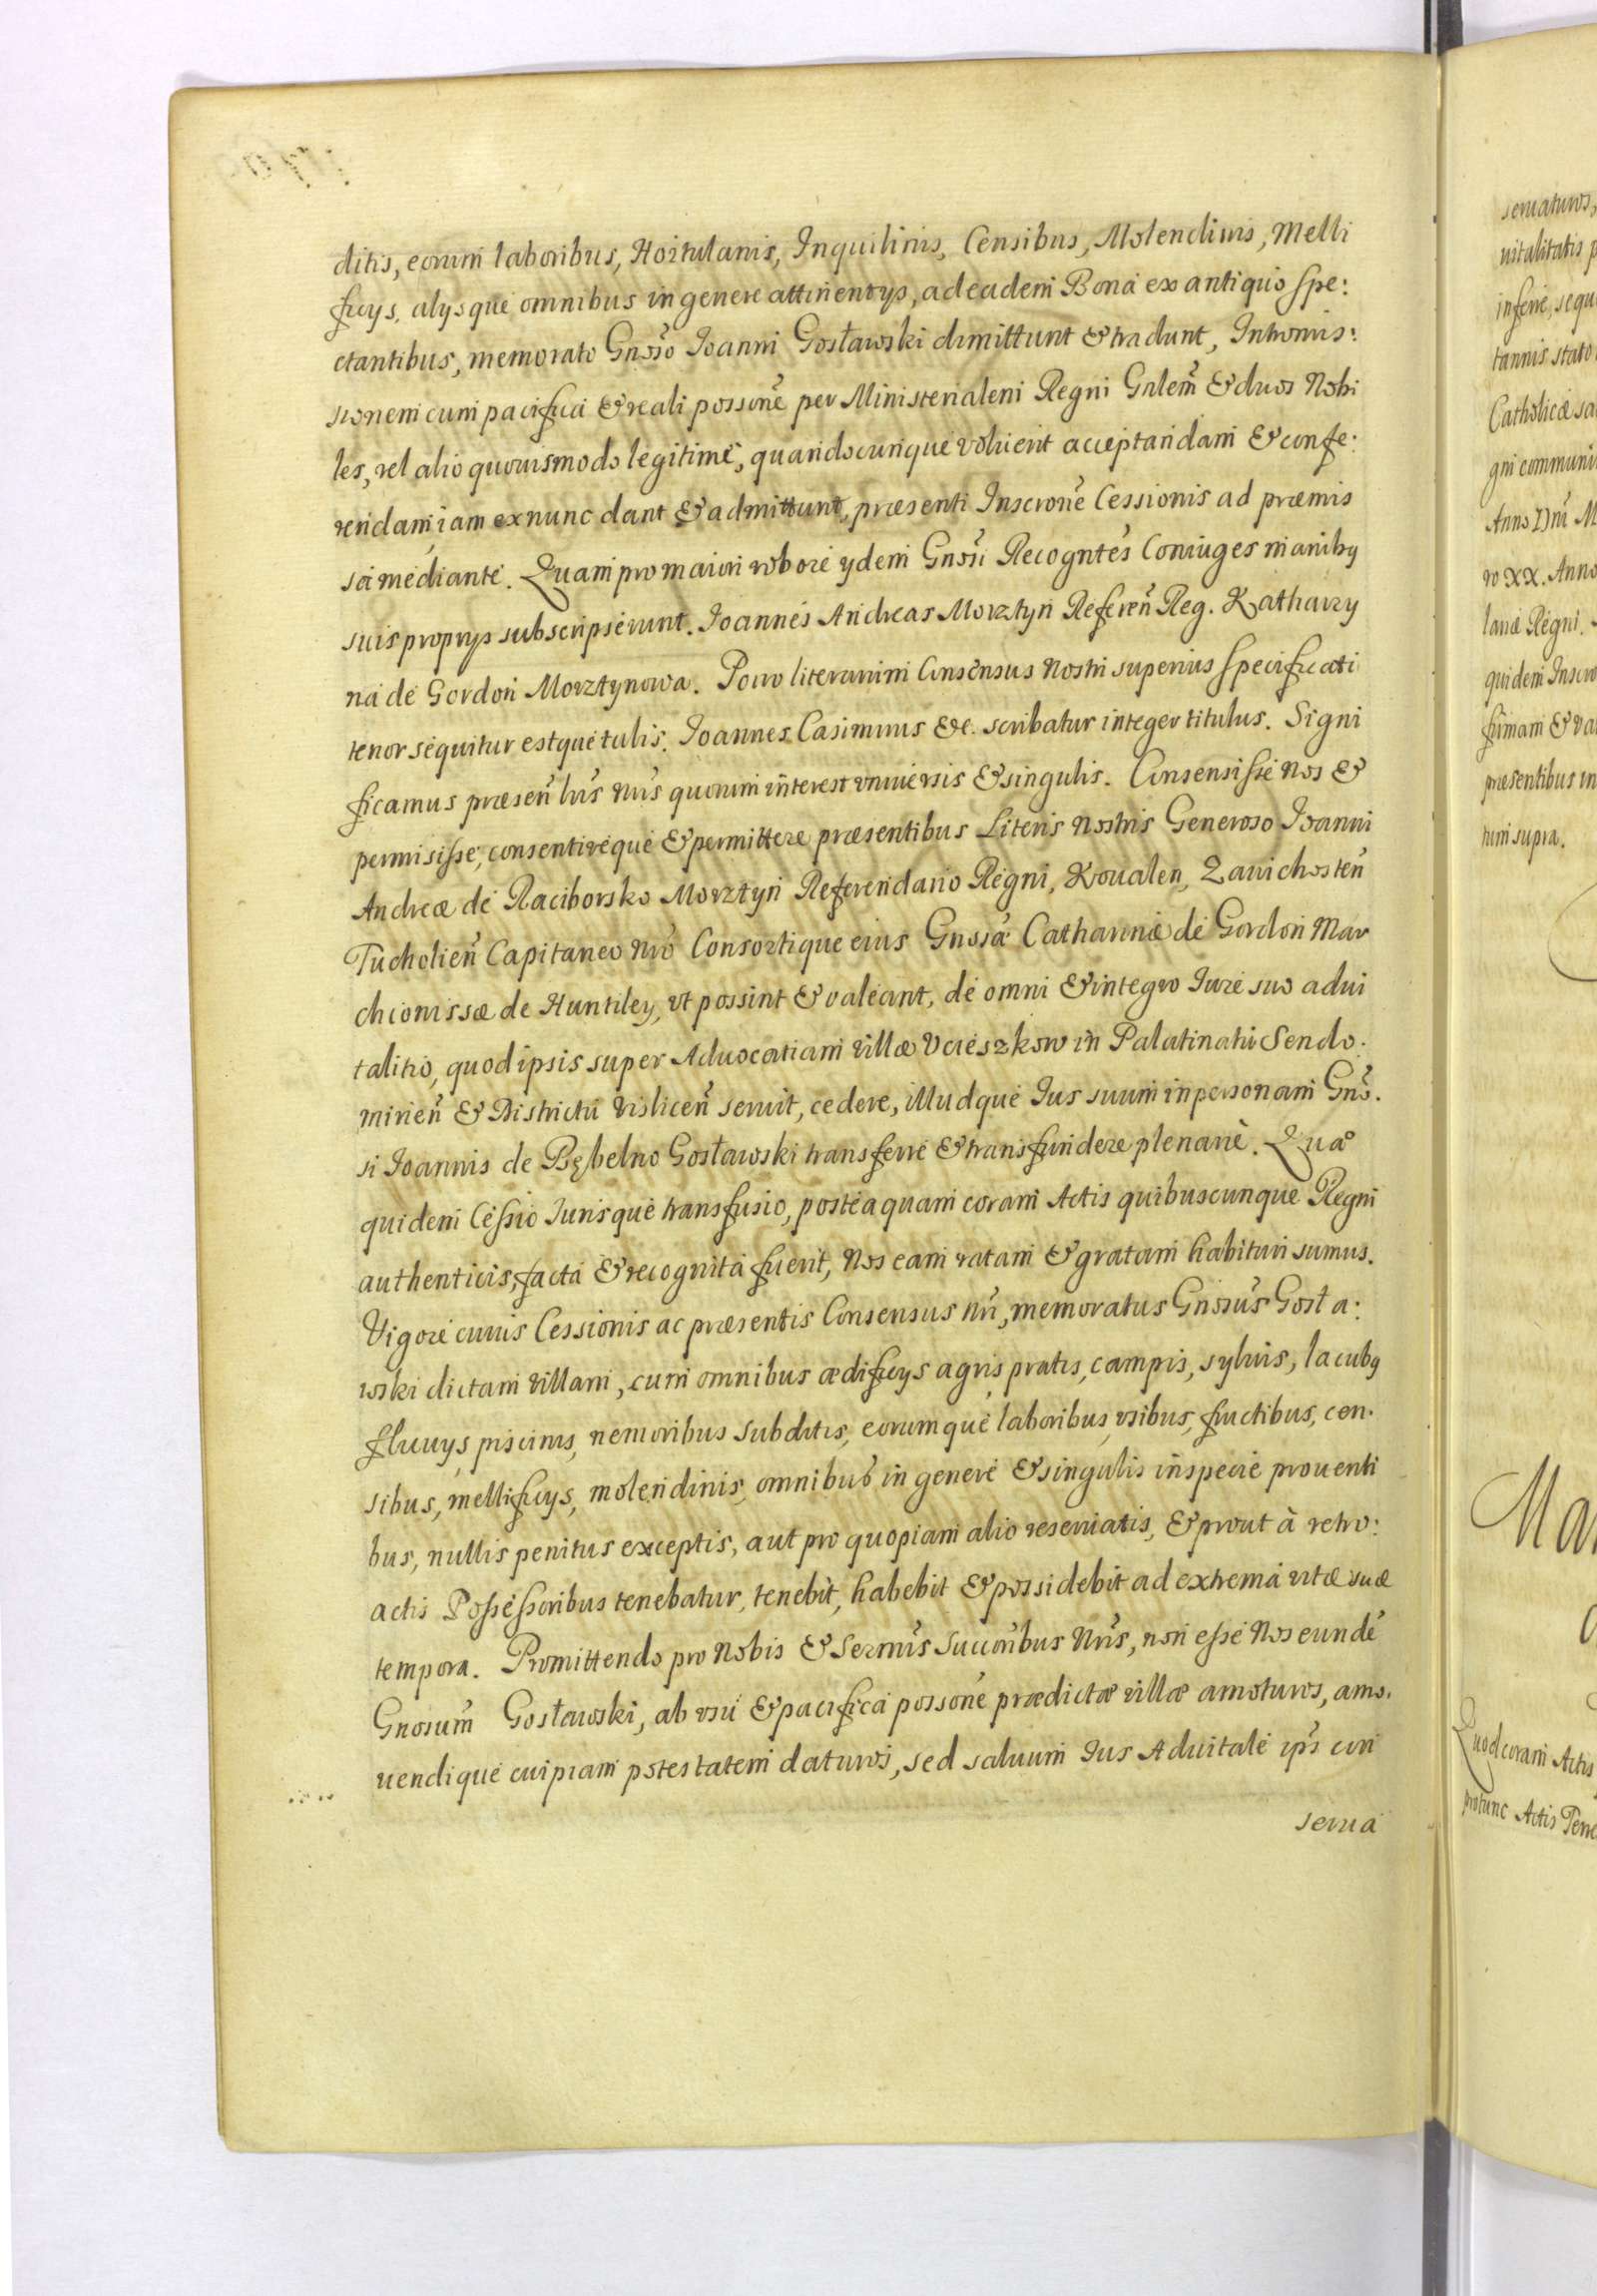 ditis, eorum laboribus, Hortulanis, Inquilinis, Censibus, Molendinis, Melli
ficys, alysque omnibus in genere attinentys, ad eadem Bona ex antiquo spe:
ctantibus, memorato Gnoso Joanni Gosławski dimittunt & tradunt, Intromis:
sionem cum pacifica & reali possone per Ministerialem Regni Gnlem & duos Nobi
les, vel alio quouismodo legitime, quandocunque voluerit acceptandam & confe:
rendam iam exnunc dant & admittunt, præsenti Inscrone Cessionis ad præmis
sa mediante. Quam pro maiori robore ydem Gnosi Recogntes Coniuges maniby
suis proprys subscripserunt. Joannes Andreas Morztyn Referen Reg. Katharzy
na de Gordon Morztynowa. Porro literarum Consensus Nostri superius specificati
tenor sequitur estque talis. Joannes Casimirus &c. scribatur integer titulus. Signi
ficamus præsen lris nris quorum interest vniuersis & singulis. Consensisse Nos &
permisisse, consentireque & permittere præsentibus Literis Nostris Generoso Joanni
Andreæ de Raciborsko Morztyn Referendario Regni, Koualen, Zawichosten
Tucholien Capitaneo Nro Consortique eius Gnosæ Catharinæ de Gordon Mar
chionissæ de Huntiley, vt possint & valeant, de omni & integro Jure suo adui
talitio, quod ipsis super Aduocatiam villæ Vcieszkow in Palatinatu Sendo:
mirien & Districtu Vislicen seruit, cedere, illudque Jus suum in personam Gno.
si Joannis de Bębelno Gosławski transferre & transfundere plenarie. Quæ
quidem Cessio Jurisque transfusio, posteaquam coram Actis quibuscunque Regni
authenticis, facta & recognita fuerit, Nos eam ratam & gratam habituri sumus.
Vigore cuius Cessionis ac præsentis Consensus nri, memoratus Gnosus Gosła:
wski dictam villam, cum omnibus ædificys agris pratis, campis, syluis, lacuby
fluuys, piscinis, nemoribus subditis, eorumque laboribus, vsibus, fructibus, cen.
sibus, mellificys, molendinis, omnibus in genere & singulis in specie prouenti
bus, nullis penitus exceptis, aut pro quopiam alio reseruatis, & prout à retro:
actis Possessoribus tenebatur, tenebit, habebit & possidebit ad extrema vitæ suæ
tempora. Promittendo pro Nobis & Sermis Succoribus Nris, non esse Nos eunde
Gnosum Gosławski, ab vsu & pacifica possone prædictæ villæ amoturos, amo.
uendique cuipiam potestatem daturos, sed saluum Jus Aduitale ips con
serua
seruaturos,
uitalitatis
inferre, sequ
tannis stato
Catholicæ sa
gni communi
Anno Dni M
ro XX. Anno
lariæ Regni.
quidem Inscro
firmam & va
præsentibus in
tum supra.
Mar
Quod coram Actis
protunc Actis Tene